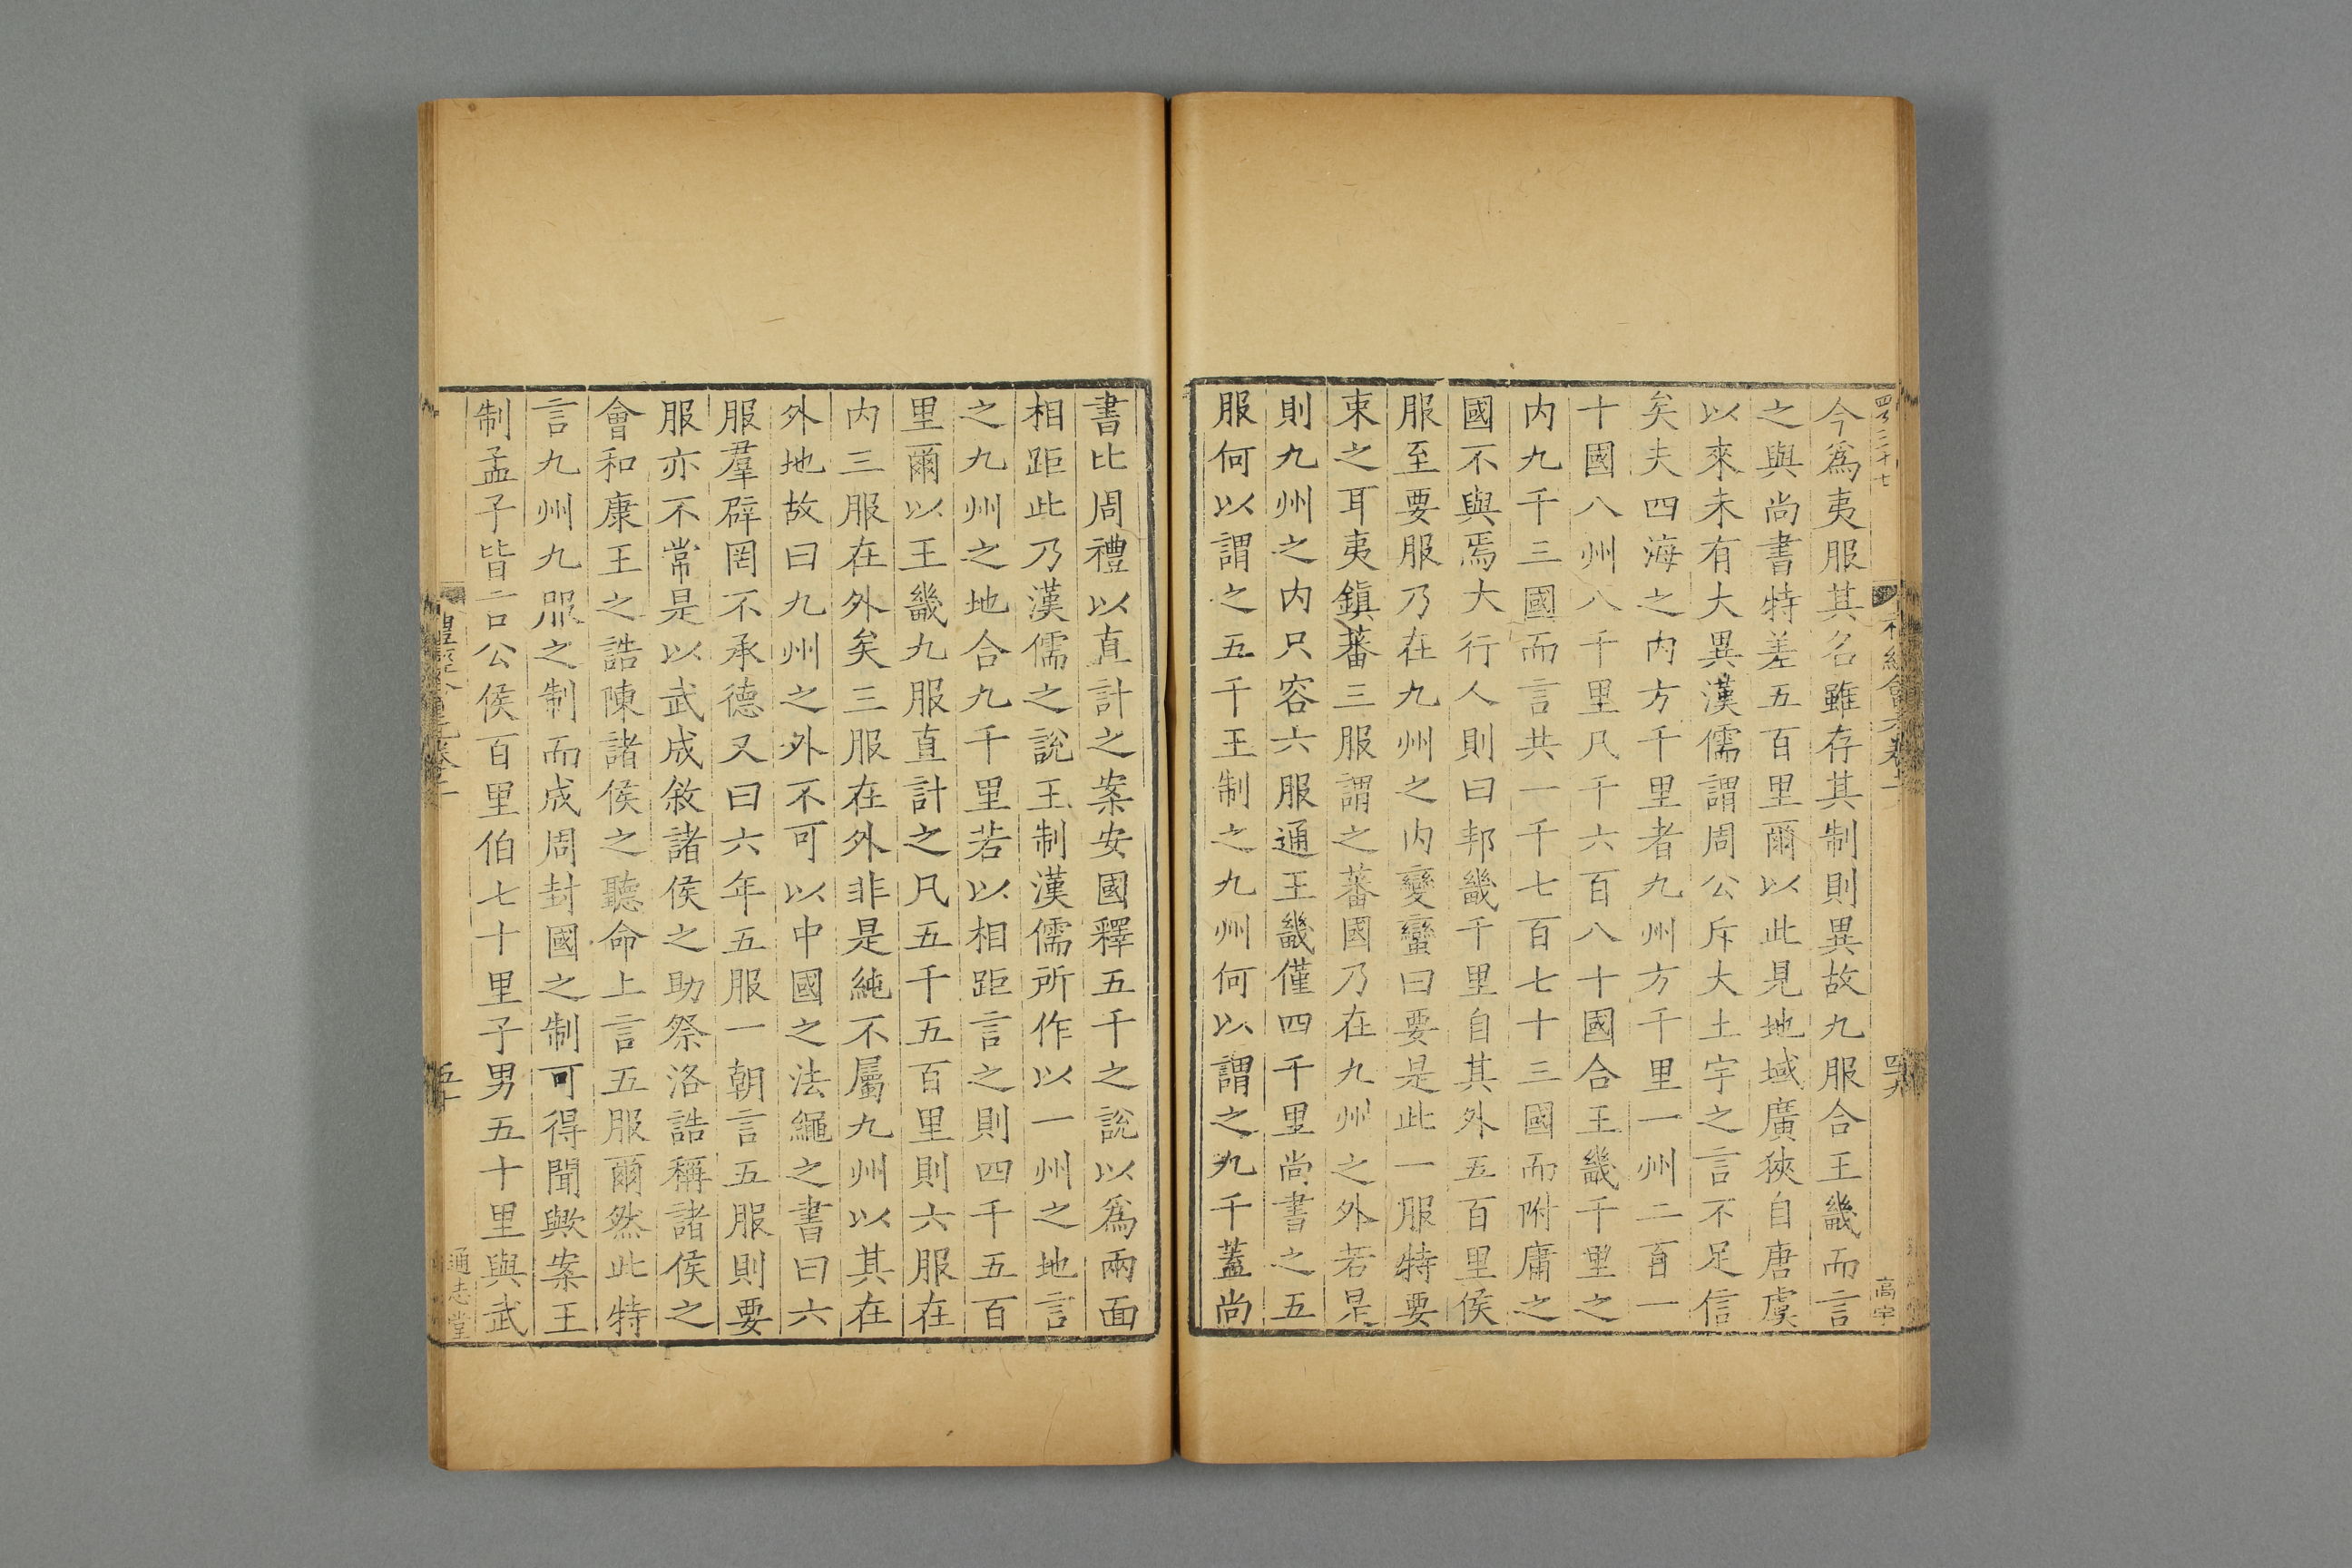 今爲夷服其名雖存其制則異故九服合王畿而言
之與尚書特差五百里爾以此見地域廣狹自唐虞
以來未有大異漢儒謂周公斥大土宇之言不足信
矣夫四海之内方千里者九州方千里一州二百一
十國八州八千里凡千六百八十國合王畿千里之
内九千三國而言共一千七百七十三國而附庸之
國不與焉大行人則曰邦畿千里自其外五百里侯
服至要服乃在九州之内變蠻曰要是此一服特要
束之耳夷鎮蕃三服謂之蕃國乃在九州之外若是
則九州之内只容六服通王畿僅四千里尚書之五
服何以謂之五千王制之九州何以謂之九千蓋尚
書比周禮以直計之案安國釋五千之說以爲兩面
相距此乃漢儒之說王制漢儒所作以一州之地言
之九州之地合九千里若以相距言之則四千五百
里爾以王畿九服直計之凡五千五百里則六服在
内三服在外矣三服在外非是純不屬九州以其在
外地故曰九州之外不可以中國之法繩之書曰六
服羣辟罔不承德又曰六年五服一朝言五服則要
服亦不常是以武成敘諸侯之助祭洛誥稱諸侯之
會和康王之誥陳諸侯之聽命上言五服爾然此特
言九州九服之制而成周封國之制可得聞歟案王
制孟子皆言公侯百里伯七十里子男五十里與武
通志堂